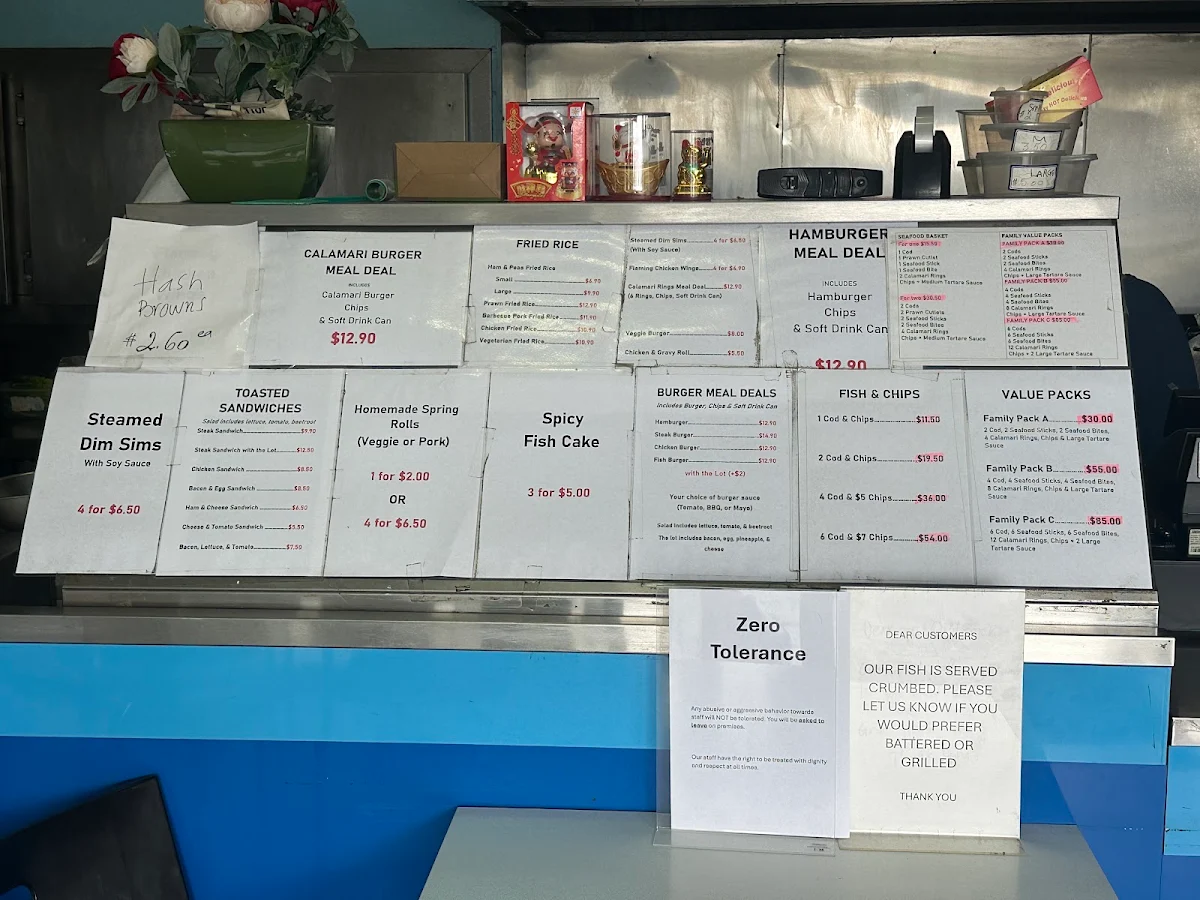 Hash
Browns
$2.60 ea
CALAMARI BURGER
MEAL DEAL
INCLUDES
Calamari Burger
Chips
& Soft Drink Can
$12.90
FRIED RICE
Ham & Peas Fried Rice
Small
$6.90
Large
$9.90
Prawn Fried Rice
$12.90
Barbecue Pork Fried Rice
$11.90
Chicken Fried Rice
$10.90
Vegetarian Fried Rice
$10.90
Steamed Dim Sims
4 for $6.50
(With Soy Sauce)
Flaming Chicken Wings
4 for $6.90
Calamari Rings Meal Deal
$12.90
(6 Rings, Chips, Soft Drink Can)
Veggie Burger
$8.00
Chicken & Gravy Roll
$5.50
HAMBURGER
MEAL DEAL
INCLUDES
Hamburger
Chips
& Soft Drink Can
$12.90
SEAFOOD BASKET
1 Cod
1 Prawn Cutlet
1 Seafood Stick
1 Seafood Bite
2 Calamari Rings
Chips + Medium Tartare Sauce
For two
2 Cods
2 Prawn Cutlets
2 Seafood Sticks
2 Seafood Bites
4 Calamari Rings
Chips + Medium Tartare Sauce
FAMILY VALUE PACKS
FAMILY PACK A
2 Cods
2 Seafood Sticks
2 Seafood Bites
4 Calamari Rings
Chips + Large Tartare Sauce
FAMILY PACK B
4 Cods
4 Seafood Sticks
4 Seafood Bites
8 Calamari Rings
Chips + Large Tartare Sauce
FAMILY PACK C
6 Cods
6 Seafood Sticks
6 Seafood Bites
12 Calamari Rings
Chips + 2 Large Tartare Sauce
M
LARGE
Steamed
Dim Sims
With Soy Sauce
4 for $6.50
TOASTED
SANDWICHES
Salad includes lettuce, tomato, beetroot
Steak Sandwich
$9.90
Steak Sandwich with the Lot
$12.50
Chicken Sandwich
$8.50
Bacon & Egg Sandwich
$8.50
Ham & Cheese Sandwich
$6.50
Cheese & Tomato Sandwich
$5.50
Bacon, Lettuce, & Tomato
$7.50
Homemade Spring
Rolls
(Veggie or Pork)
1 for $2.00
OR
4 for $6.50
Spicy
Fish Cake
3 for $5.00
BURGER MEAL DEALS
Includes Burger, Chips & Soft Drink Can
Hamburger
$12.90
Steak Burger
$14.90
Chicken Burger
$12.90
Fish Burger
$12.90
with the Lot (+$2)
Your choice of burger sauce
(Tomato, BBQ, or Mayo)
Salad includes lettuce, tomato, & beetroot
The lot includes bacon, egg, pineapple, &
cheese
FISH & CHIPS
1 Cod & Chips
$11.50
2 Cod & Chips
$19.50
4 Cod & $5 Chips
$36.00
6 Cod & $7 Chips
$54.00
VALUE PACKS
Family Pack A
$30.00
2 Cod, 2 Seafood Sticks, 2 Seafood Bites,
4 Calamari Rings, Chips & Large Tartare
Sauce
Family Pack B
$55.00
4 Cod, 4 Seafood Sticks, 4 Seafood Bites,
8 Calamari Rings, Chips & Large Tartare
Sauce
Family Pack C
$85.00
6 Cod, 6 Seafood Sticks, 6 Seafood Bites,
12 Calamari Rings, Chips + 2 Large
Tartare Sauce
Zero
Tolerance
Any abusive or aggressive behavior towards
staff will NOT be tolerated. You will be asked to
leave on premises.
Our staff have the right to be treated with dignity
and respect at all times.
DEAR CUSTOMERS
OUR FISH IS SERVED
CRUMBED. PLEASE
LET US KNOW IF YOU
WOULD PREFER
BATTERED OR
GRILLED
THANK YOU